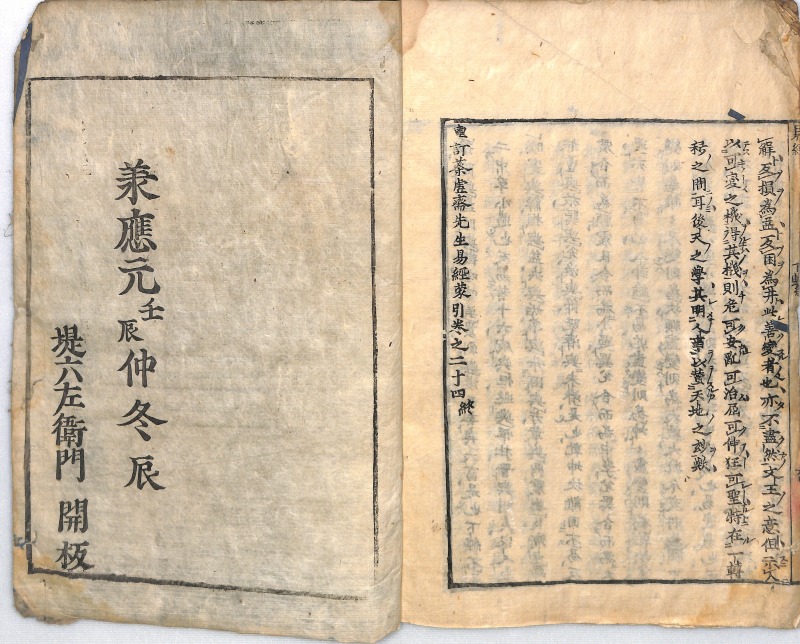 解反損為孟反困為井此善變者也亦不盡然文王之意但示人
以可變之機得其機則危可安亂可治屈可伸狂可聖特在一轉
移之間耳後天之學其明人事以贊天地之妙歟
重訂蔡虛齋先生易經蒙引卷之二十四終
承應元壬辰仲冬辰
堤六左衛門 開板